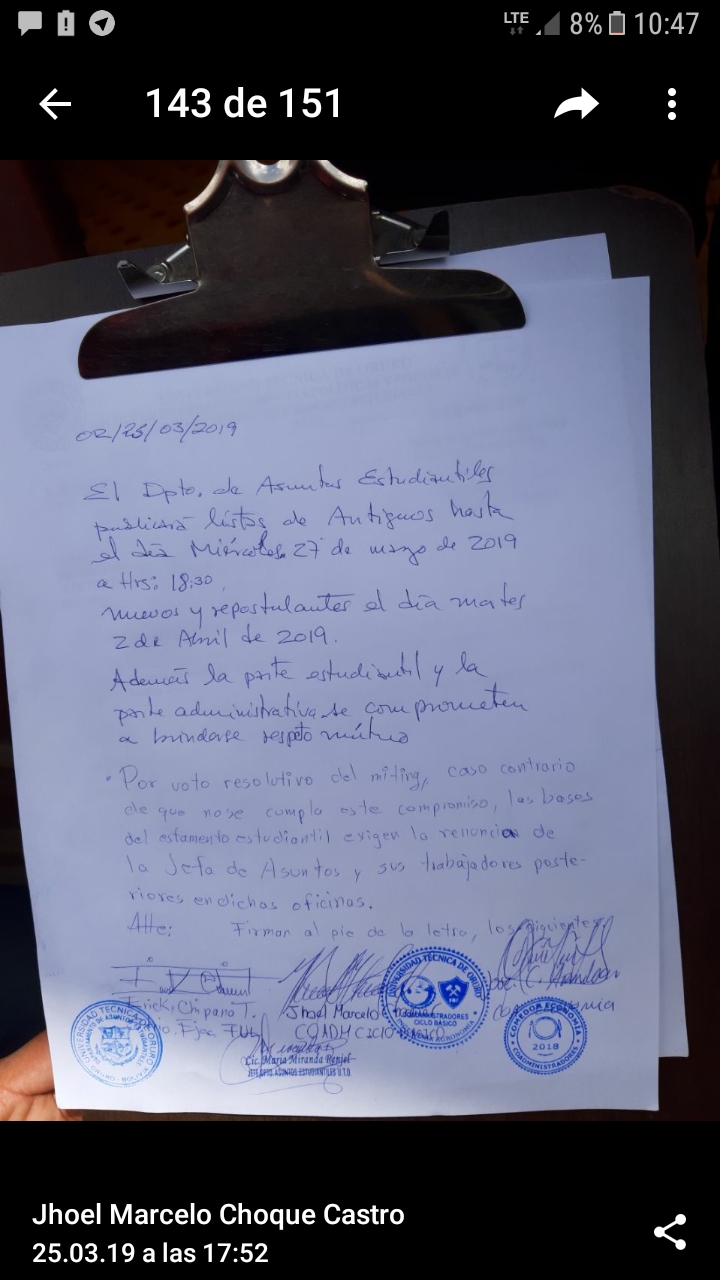 LTE 8% 10:47
143 de 151
OR/25/03/2019
El Dpto. de Asuntos Estudiantiles
publicará listas de Antiguos hasta
el día Miércoles 27 de marzo de 2019
a Hrs: 18:30,
nuevos y repostulantes el día martes
2 de Abril de 2019.
Además la parte estudiantil y la
parte administrativa se comprometen
a brindarse respeto mútuo
• Por voto resolutivo del miting, caso contrario
de que no se cumpla este compromiso, las bases
del estamento estudiantil exigen la renuncia de
la Jefa de Asuntos y sus trabajadores poste-
riores en dichas oficinas.
Atte: Firman al pie de la letra, los siguientes
Erick Chipana T.
Jhoel Marcelo
FUL
COADM CICLO BASICO
UNIVERSIDAD TECNICA DE ORURO
ORURO - BOLIVIA
UNIVERSIDAD TECNICA DE ORURO
COADMINISTRADORES
CICLO BASICO
AGRONOMIA
COMEDOR ECONOMIA
2018
COADMINISTRADORES
Lic. Maria Miranda Renjel
JEFE DPTO. ASUNTOS ESTUDIANTILES U.T.O.
Jhoel Marcelo Choque Castro
25.03.19 a las 17:52